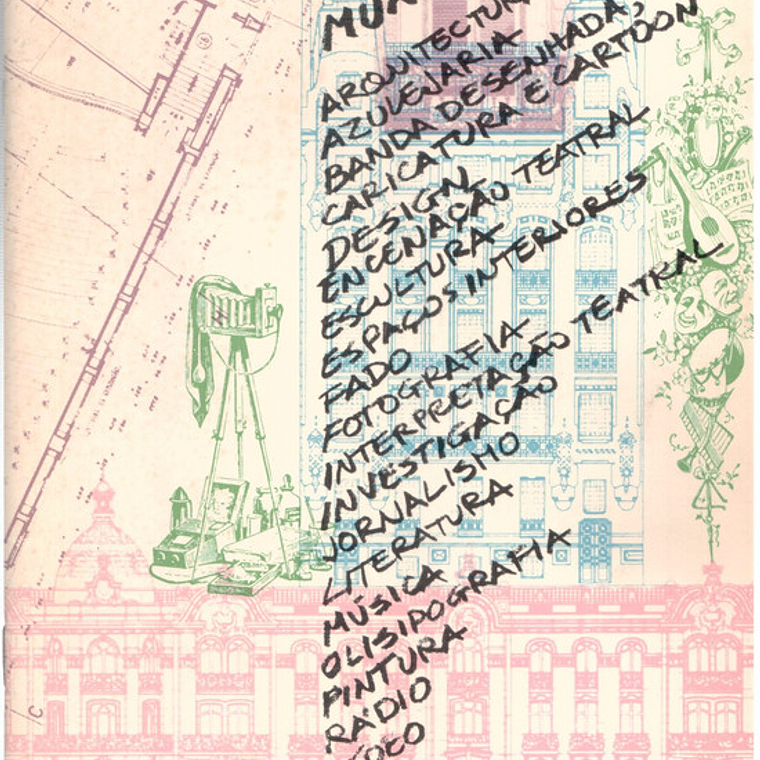 ARQUITECTURA
AZULEJARIA
BANDA DESENHADA,
CARICATURA E CARTOON
DESIGN
ENCENAÇÃO TEATRAL
ESCULTURA
ESPAÇOS INTERIORES
FADO
FOTOGRAFIA
INTERPRETAÇÃO TEATRAL
INVESTIGAÇÃO
JORNALISMO
LITERATURA
MÚSICA
OLISIPOGRAFIA
PINTURA
RÁDIO